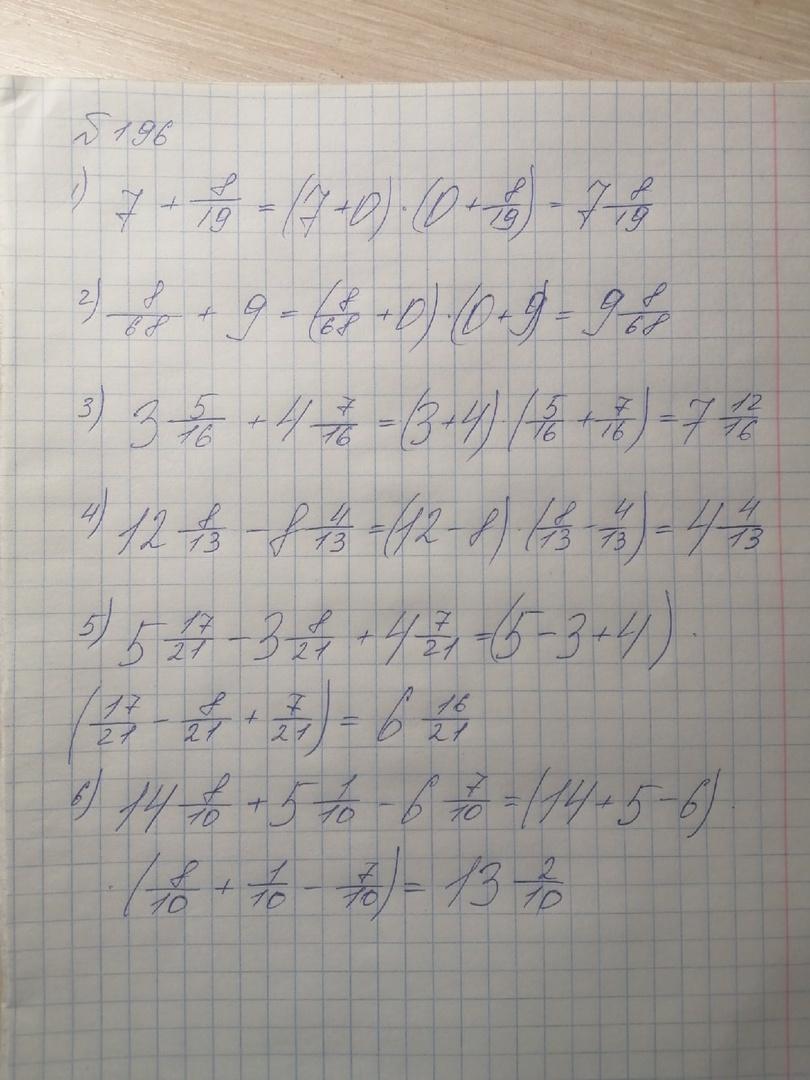 № 196
1) 7 + 8/19 = (7+0)·(0+8/19) = 7 8/19
2) 8/68 + 9 = (8/68 + 0)·(0+9) = 9 8/68
3) 3 5/16 + 4 7/16 = (3+4)·(5/16 + 7/16) = 7 12/16
4) 12 8/13 - 8 4/13 = (12-8)·(8/13 - 4/13) = 4 4/13
5) 5 17/21 - 3 8/21 + 4 7/21 = (5-3+4)·
(17/21 - 8/21 + 7/21) = 6 16/21
6) 14 8/10 + 5 1/10 - 6 7/10 = (14+5-6)·
·(8/10 + 1/10 - 7/10) = 13 2/10